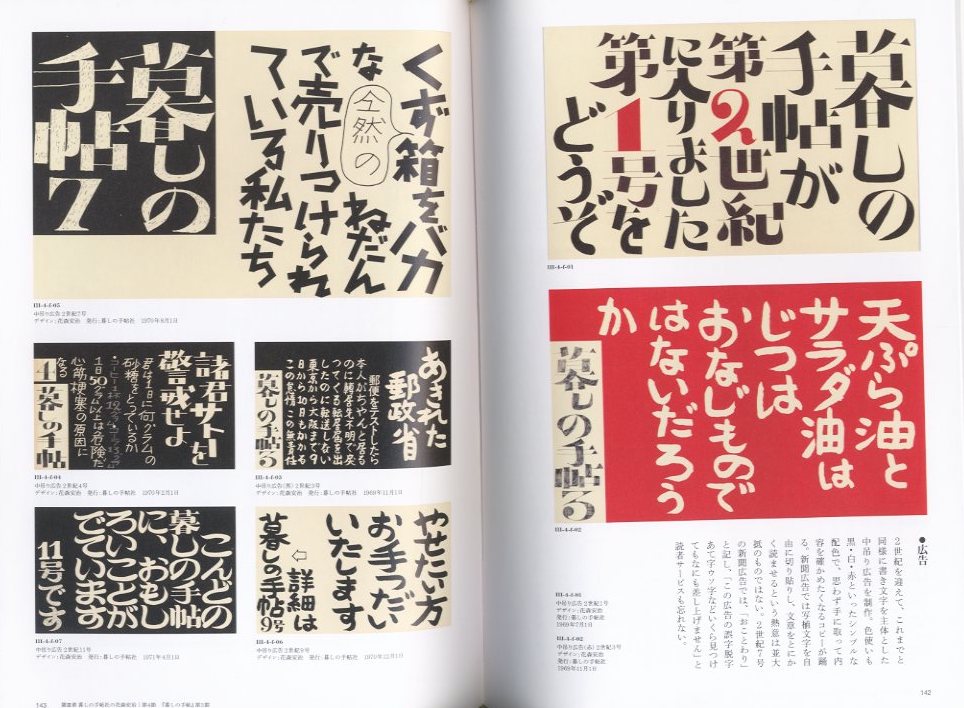 暮しの
手帖が
第2世紀
に入りました
第1号を
どうぞ
III-4-f-01
天ぷら油と
サラダ油は
じつは
おなじもので
はないだろう
か
暮しの手帖3
III-4-f-02
●広告
2世紀を迎えて、これまでと
同様に書き文字を主体とした
中吊り広告を制作。色使いも
黒・白・赤といったシンプルな
配色で、思わず手に取って内
容を確かめたくなるコピーが踊
る。新聞広告では写植文字を自
由に切り貼りし、文章をとにか
く読ませるという熱意は並大
抵のものではない。2世紀7号
の新聞広告では、「おことわり」
と記し、「この広告の誤字脱字
あて字ウソ字などいくら見つけ
てもなにも差し上げません」と
読者サービスも忘れない。
III-4-f-01
中吊り広告 2世紀1号
デザイン:花森安治
発行:暮しの手帖社
1969年7月1日
III-4-f-02
中吊り広告(赤) 2世紀3号
デザイン:花森安治
発行:暮しの手帖社
1969年11月1日
142
くず箱をバカ
な 全然の ねだん
で売りつけられ
ている私たち
暮しの
手帖7
III-4-f-05
中吊り広告 2世紀7号
デザイン:花森安治 発行:暮しの手帖社 1970年8月1日
あきれた
郵政省
郵便をテストしたら
本人がちゃんと居る
のに転居先不明で戻
ってくる転居届を出
したのに転送しない
東京から大阪まで9
日から10日もかかる
この非情 この無責任
暮しの手帖3
III-4-f-03
中吊り広告(黒) 2世紀3号
デザイン:花森安治 発行:暮しの手帖社 1969年11月1日
諸君サトーを
警戒せよ
君は1日に何グラムの
砂糖をとっているか
1日50グラム以上は危険だ
心筋梗塞の原因に
なる
4 暮しの手帖
III-4-f-04
中吊り広告 2世紀4号
デザイン:花森安治 発行:暮しの手帖社 1970年2月1日
やせたい方
お手つだい
いたします
⇦ 詳細は
暮しの手帖9号
III-4-f-06
中吊り広告 2世紀9号
デザイン:花森安治 発行:暮しの手帖社 1970年12月1日
こんどの
暮しの手帖
に、おもし
ろいことが
でています
11号です
III-4-f-07
中吊り広告 2世紀11号
デザイン:花森安治 発行:暮しの手帖社 1971年4月1日
143